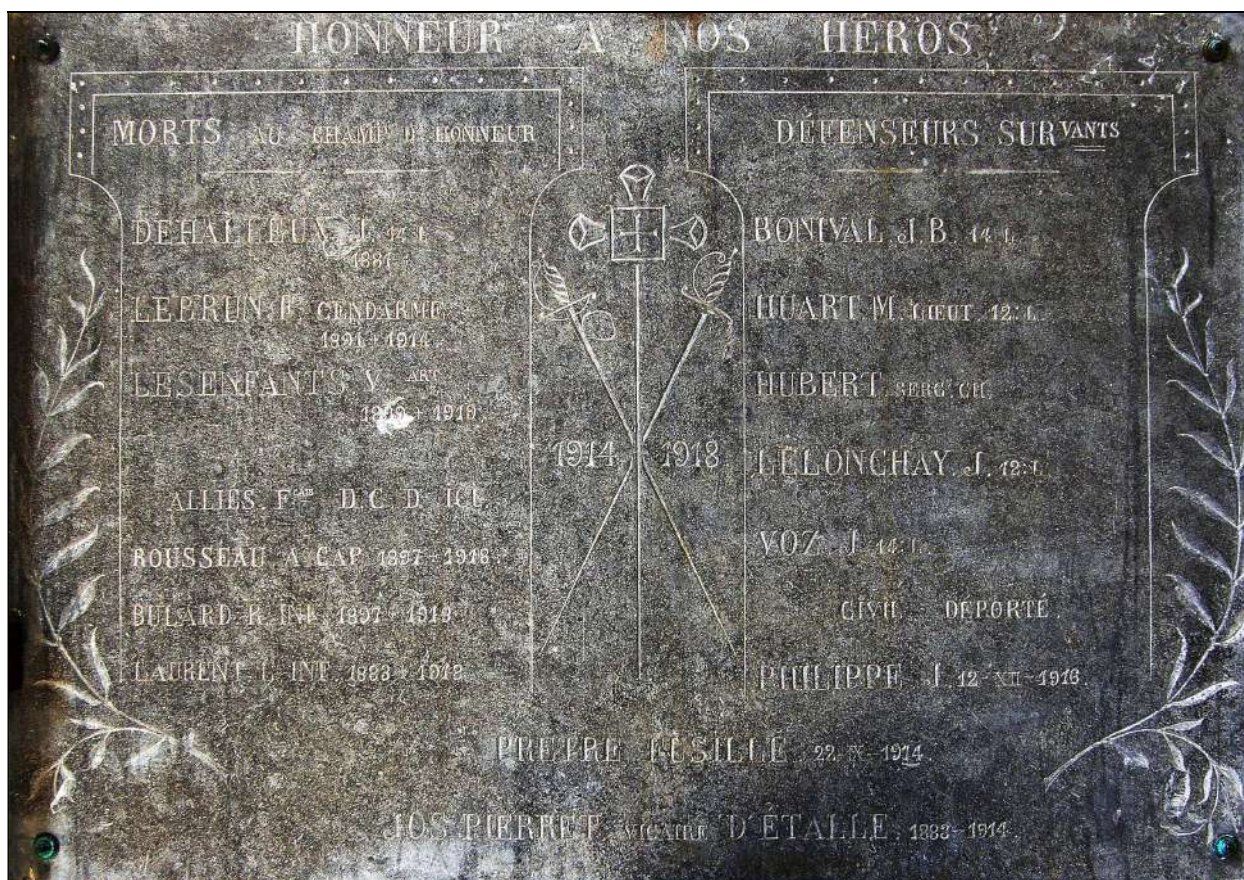 HONNEUR A NOS HEROS
MORTS AU CHAMP D'HONNEUR
DEHALLEUX J. 14. L.
1881
LEBRUN. F. GENDARME
1891 + 1914.
LESENFANTS. V. ART
+ 1919.
ALLIÉS. FÇAIS D.C.D. ICI.
ROUSSEAU. A. CAP. 1897 + 1918.
BULARD. R. INF. 1897 + 1918
LAURENT. L. INF. 1883 + 1918.
1914 1918
DÉFENSEURS SURVANTS
BONIVAL. J.B. 14. L.
HUART M. LIEUT. 12: L.
HUBERT. SERG. CH.
LELONCHAY. J. 12: L.
VOZ. J. 14: L.
CIVIL DEPORTÉ.
PHILIPPE J. 12-XII-1916.
PRETRE FUSILLÉ. 22-IX-1914.
JOS. PIERRET. VICAIRE D'ÉTALLE. 1883-1914.